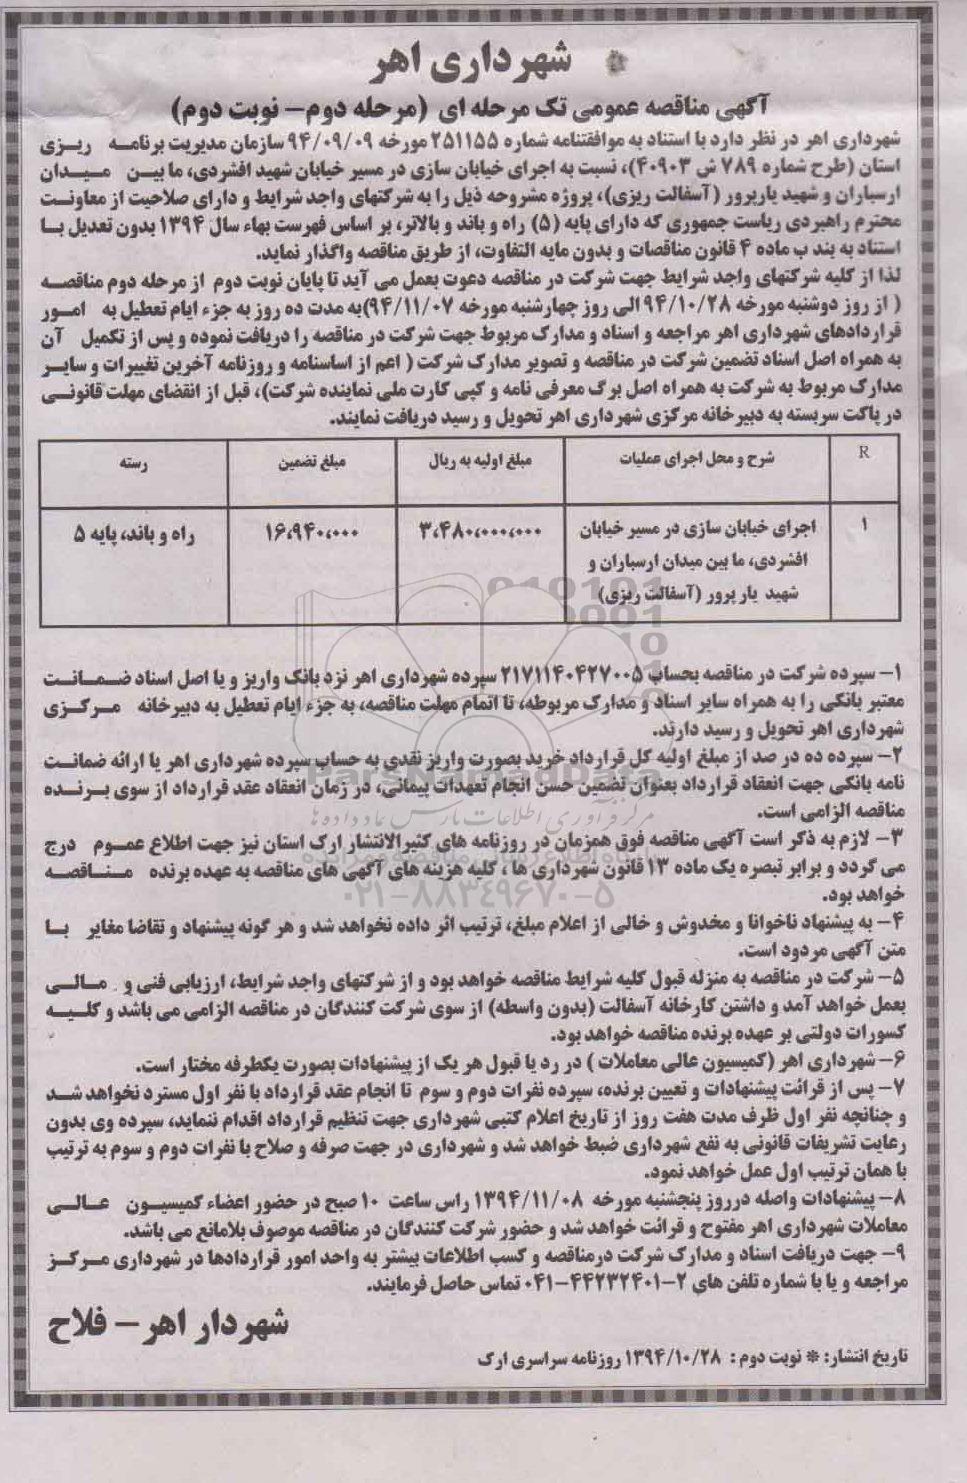 شهرداری اهر
آگهی مناقصه عمومی تک مرحله ای (مرحله دوم- نوبت دوم)
شهرداری اهر در نظر دارد با استناد به موافقتنامه شماره ۲۵۱۱۵۵ مورخه ۹۴/۰۹/۰۹ سازمان مدیریت برنامه ریزی
استان (طرح شماره ۷۸۹ ش ۴۰۹۰۳)، نسبت به اجرای خیابان سازی در مسیر خیابان شهید افشردی، ما بین میدان
ارسباران و شهید یارپرور (آسفالت ریزی)، پروژه مشروحه ذیل را به شرکتهای واجد شرایط و دارای صلاحیت از معاونت
محترم راهبردی ریاست جمهوری که دارای پایه (۵) راه و باند و بالاتر، بر اساس فهرست بهاء سال ۱۳۹۴ بدون تعدیل با
استناد به بند ب ماده ۴ قانون مناقصات و بدون مابه التفاوت، از طریق مناقصه واگذار نماید.
لذا از کلیه شرکتهای واجد شرایط جهت شرکت در مناقصه دعوت بعمل می آید تا پایان نوبت دوم از مرحله دوم مناقصه
( از روز دوشنبه مورخه ۹۴/۱۰/۲۸ الی روز چهارشنبه مورخه ۹۴/۱۱/۰۷)به مدت ده روز به جزء ایام تعطیل به امور
قراردادهای شهرداری اهر مراجعه و اسناد و مدارک مربوط جهت شرکت در مناقصه را دریافت نموده و پس از تکمیل آن
به همراه اصل اسناد تضمین شرکت در مناقصه و تصویر مدارک شرکت ( اعم از اساسنامه و روزنامه آخرین تغییرات و سایر
مدارک مربوط به شرکت به همراه اصل برگ معرفی نامه و کپی کارت ملی نماینده شرکت)، قبل از انقضای مهلت قانونی
در پاکت سربسته به دبیرخانه مرکزی شهرداری اهر تحویل و رسید دریافت نمایند.
R شرح و محل اجرای عملیات مبلغ اولیه به ریال مبلغ تضمین رسته
۱ اجرای خیابان سازی در مسیر خیابان ۳،۴۸۰،۰۰۰،۰۰۰ ۱۶،۹۴۰،۰۰۰ راه و باند، پایه ۵
افشردی، ما بین میدان ارسباران و
شهید یارپرور (آسفالت ریزی)
۱- سپرده شرکت در مناقصه بحساب ۲۱۷۱۱۴۰۴۲۷۰۰۵ سپرده شهرداری اهر نزد بانک واریز و یا اصل اسناد ضمانت
معتبر بانکی را به همراه سایر اسناد و مدارک مربوطه، تا اتمام مهلت مناقصه، به جزء ایام تعطیل به دبیرخانه مرکزی
شهرداری اهر تحویل و رسید دارند.
۲- سپرده ده در صد از مبلغ اولیه کل قرارداد خرید بصورت واریز نقدی به حساب سپرده شهرداری اهر یا ارائه ضمانت
نامه بانکی جهت انعقاد قرارداد بعنوان تضمین حسن انجام تعهدات پیمانی، در زمان انعقاد عقد قرارداد از سوی برنده
مناقصه الزامی است.
ParsNamadData
مرکز فرآوری اطلاعات پارس نماد داده ها
۳- لازم به ذکر است آگهی مناقصه فوق همزمان در روزنامه های کثیرالانتشار ارک استان نیز جهت اطلاع عموم درج
می گردد و برابر تبصره یک ماده ۱۳ قانون شهرداری ها ، کلیه هزینه های آگهی های مناقصه به عهده برنده مناقصه
خواهد بود.
۰۲۱-۸۸۳۴۹۶۷۰-۵
۴- به پیشنهاد ناخوانا و مخدوش و خالی از اعلام مبلغ، ترتیب اثر داده نخواهد شد و هر گونه پیشنهاد و تقاضا مغایر با
متن آگهی مردود است.
۵- شرکت در مناقصه به منزله قبول کلیه شرایط مناقصه خواهد بود و از شرکتهای واجد شرایط، ارزیابی فنی و مالی
بعمل خواهد آمد و داشتن کارخانه آسفالت (بدون واسطه) از سوی شرکت کنندگان در مناقصه الزامی می باشد و کلیه
کسورات دولتی بر عهده برنده مناقصه خواهد بود.
۶- شهرداری اهر (کمیسیون عالی معاملات ) در رد یا قبول هر یک از پیشنهادات بصورت یکطرفه مختار است.
۷- پس از قرائت پیشنهادات و تعیین برنده، سپرده نفرات دوم و سوم تا انجام عقد قرارداد با نفر اول مسترد نخواهد شد
و چنانچه نفر اول ظرف مدت هفت روز از تاریخ اعلام کتبی شهرداری جهت تنظیم قرارداد اقدام ننماید، سپرده وی بدون
رعایت تشریفات قانونی به نفع شهرداری ضبط خواهد شد و شهرداری در جهت صرفه و صلاح با نفرات دوم و سوم به ترتیب
با همان ترتیب اول عمل خواهد نمود.
۸- پیشنهادات واصله درروز پنجشنبه مورخه ۱۳۹۴/۱۱/۰۸ راس ساعت ۱۰ صبح در حضور اعضاء کمیسیون عالی
معاملات شهرداری اهر مفتوح و قرائت خواهد شد و حضور شرکت کنندگان در مناقصه موصوف بلامانع می باشد.
۹- جهت دریافت اسناد و مدارک شرکت درمناقصه و کسب اطلاعات بیشتر به واحد امور قراردادها در شهرداری مرکز
مراجعه و یا با شماره تلفن های ۲-۰۴۱-۴۴۲۳۲۴۰۱ تماس حاصل فرمایند.
شهردار اهر- فلاح
تاریخ انتشار: * نوبت دوم : ۱۳۹۴/۱۰/۲۸ روزنامه سراسری ارک